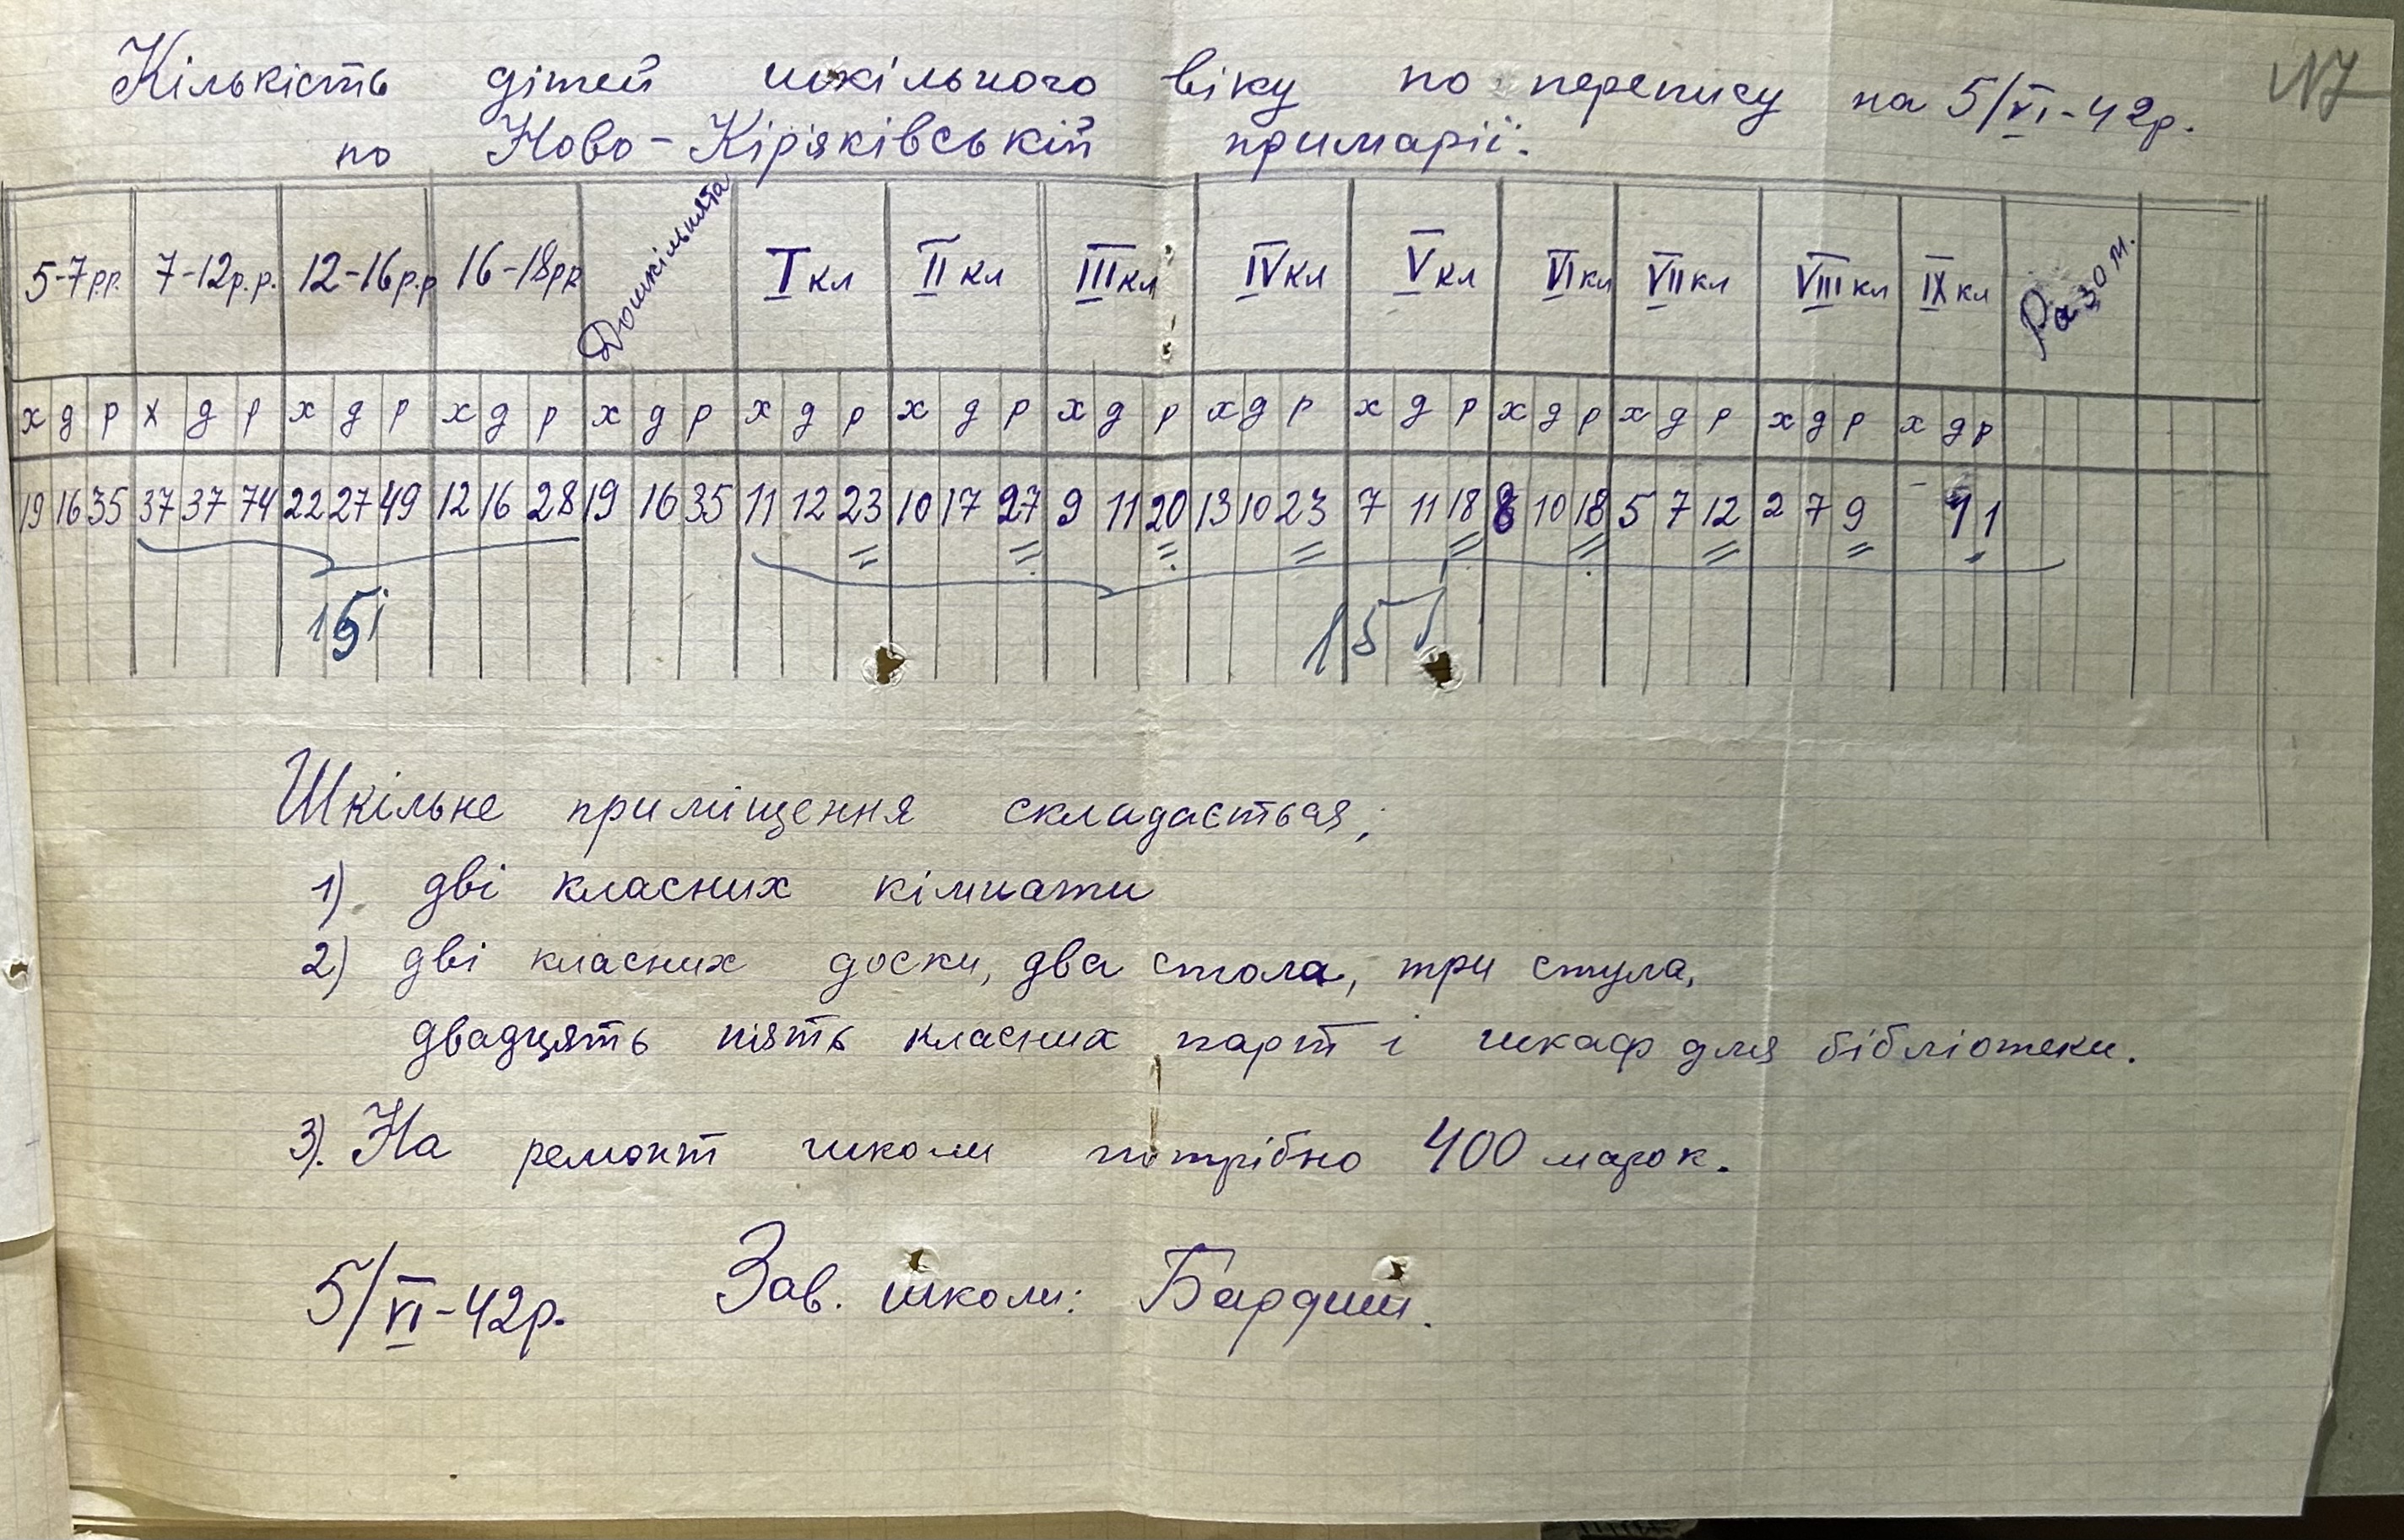 N7
Кількість дітей шкільного віку по перепису на 5/VI-42р.
по Ново-Кір'яківській примарії.
5-7р.р. 7-12р.р. 12-16р.р 16-18рр Дошкільнята I кл II кл III кл IV кл V кл VI кл VII кл VIII кл IX кл Разом.
х д р х д р х д р х д р х д р х д р х д р х д р х д р х д р х д р х д р х д р х д р
19 16 35 37 37 74 22 27 49 12 16 28 19 16 35 11 12 23 10 17 27 9 11 20 13 10 23 7 11 18 8 10 18 5 7 12 2 7 9 - 1 1
151 151
Шкільне приміщення складається;
1) дві класних кімнати
2) дві класних доски, два стола, три стула,
двадцять п'ять класних парт і шкаф для бібліотеки.
3). На ремонт школи потрібно 400 марок.
5/VI-42р. Зав. школи: